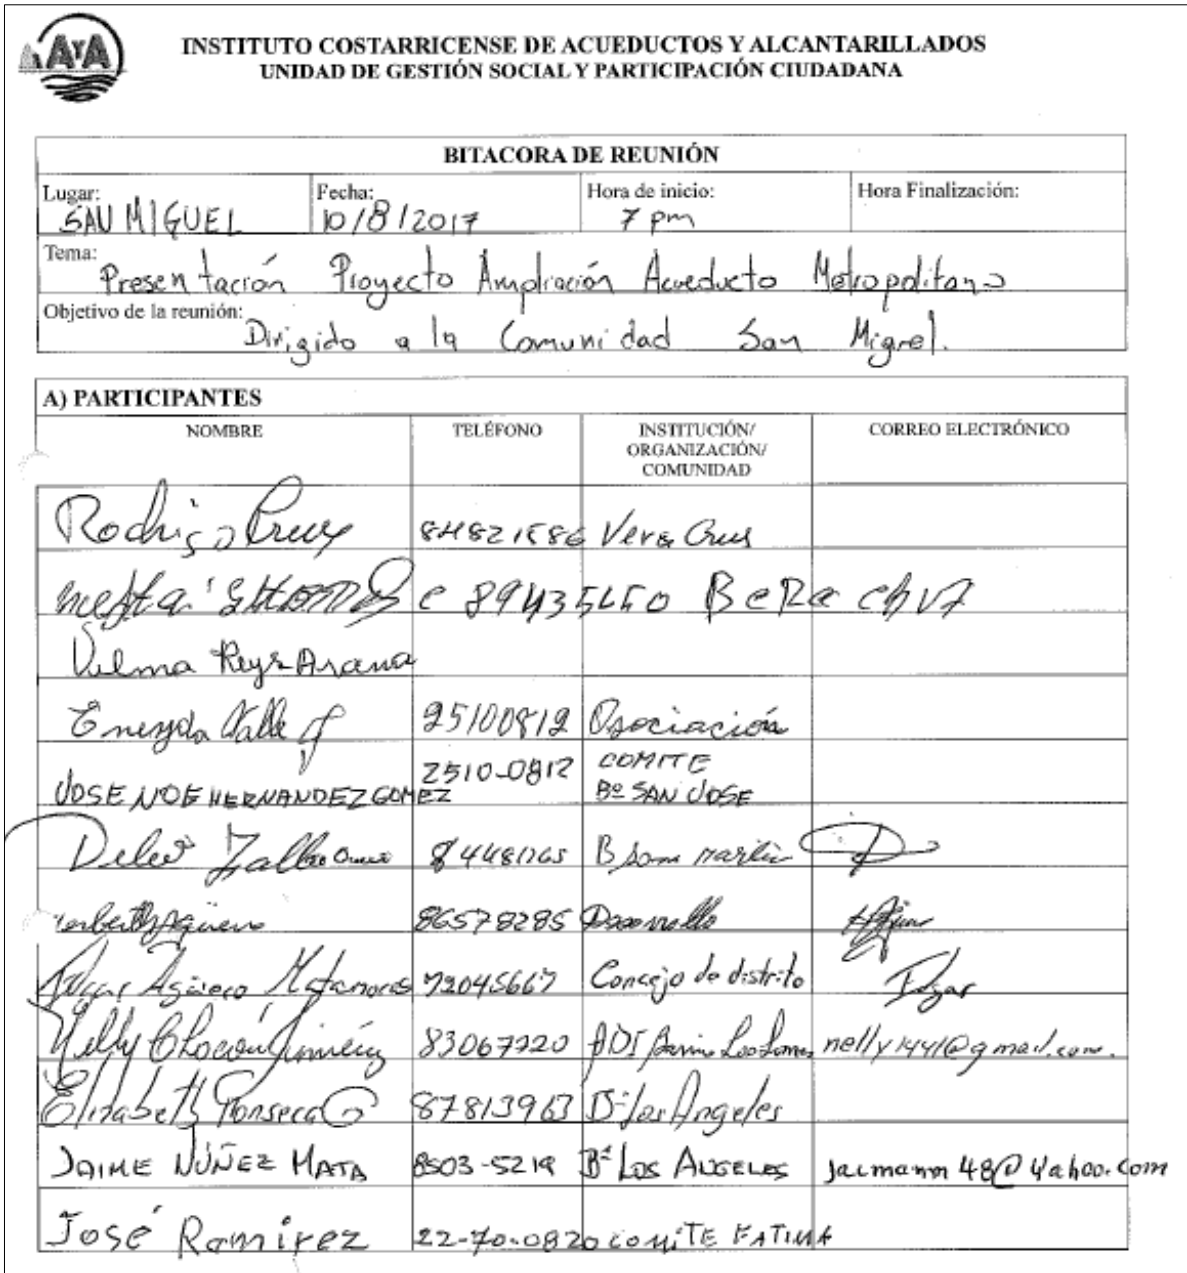 AYA
INSTITUTO COSTARRICENSE DE ACUEDUCTOS Y ALCANTARILLADOS
UNIDAD DE GESTIÓN SOCIAL Y PARTICIPACIÓN CIUDADANA
BITACORA DE REUNIÓN
Lugar: SAN MIGUEL Fecha: 10/8/2017 Hora de inicio: 7 pm Hora Finalización:
Tema: Presentación Proyecto Ampliación Acueducto Metropolitano
Objetivo de la reunión: Dirigido a la Comunidad San Miguel.
A) PARTICIPANTES
NOMBRE TELÉFONO INSTITUCIÓN/ ORGANIZACIÓN/ COMUNIDAD CORREO ELECTRÓNICO
Rodrigo Vera Cruz
Vilma Reyes Arana
Eneyda Valle 25100812 Asociación
JOSE NOE HERNANDEZ GOMEZ 2510-0812 COMITE Bº SAN JOSE
B San Martin
86578285 Desarrollo
Agüero Matamoros Concejo de distrito Edgar
Nelly Chacón Jiménez 83067720 ADI Barrio Los Lomas nelly1441@gmail.com.
Elizabeth Fonseca G 87813963 Bº Los Angeles
JAIME NÚÑEZ MATA 8503-5219 Bº LOS ANGELES jacmanm48@Yahoo.com
José Ramirez 22-70-0820 COMITE FATIMA